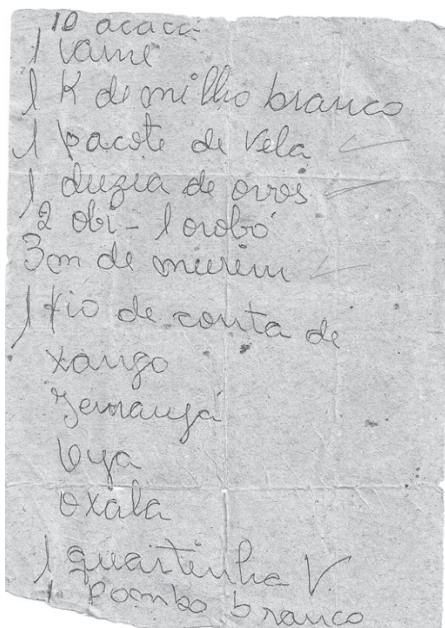 10 acaca
1 vame
1 K de milho branco
1 pacote de vela
1 duzia de ovos
2 obi - 1 orobó
3m de murim
1 fio de conta de
xango
Jemanya
Oya
oxala
1 quartinha V.
1 pombo branco